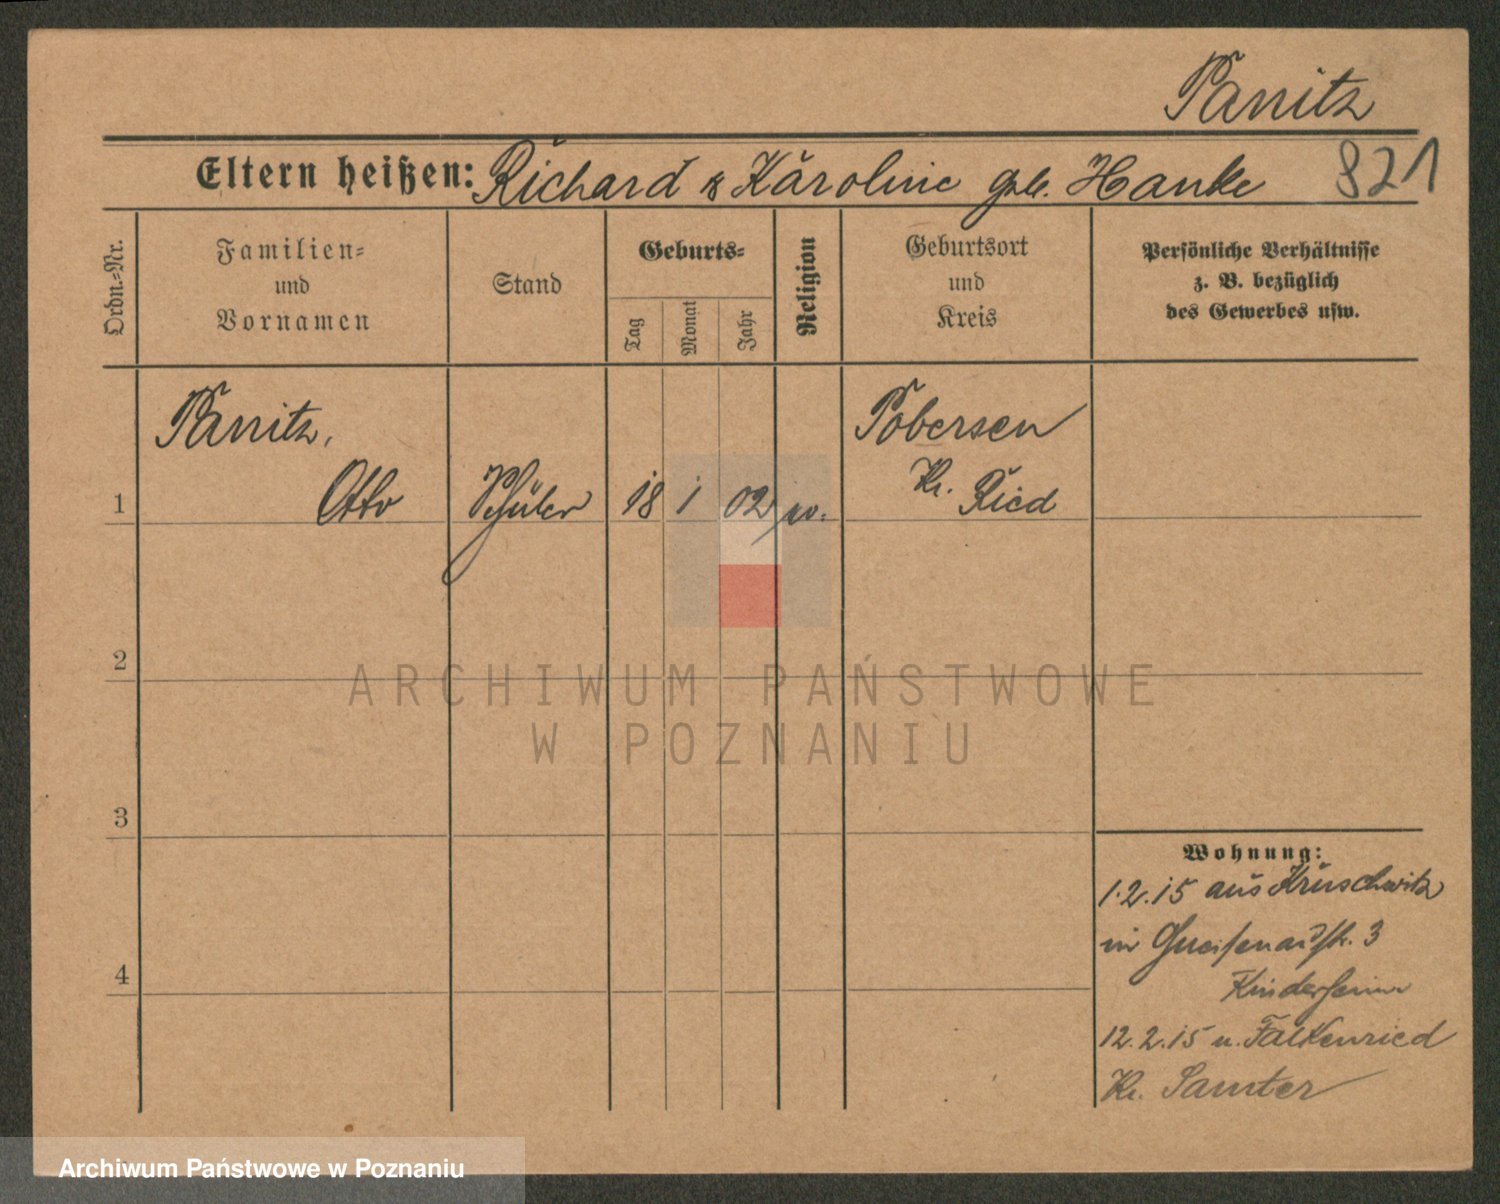 Panitz
Eltern heißen: Richard & Karoline geb. Hanke 821
Ordn.=Nr.
Familien=
und
Vornamen
Stand
Geburts=
Tag
Monat
Jahr
Religion
Geburtsort
und
Kreis
Persönliche Verhältnisse
z. B. bezüglich
des Gewerbes usw.
Panitz, Pobersen
1 Otto Schüler 18 1 02 Kr. Ried
2
ARCHIWUM PAŃSTWOWE
W POZNANIU
3
Wohnung:
1.2.15 aus Kruschwitz
in Gneisenaustr. 3
4
Kinderheim
12.2.15 n. Falkenried
Kr. Samter
Archiwum Państwowe w Poznaniu